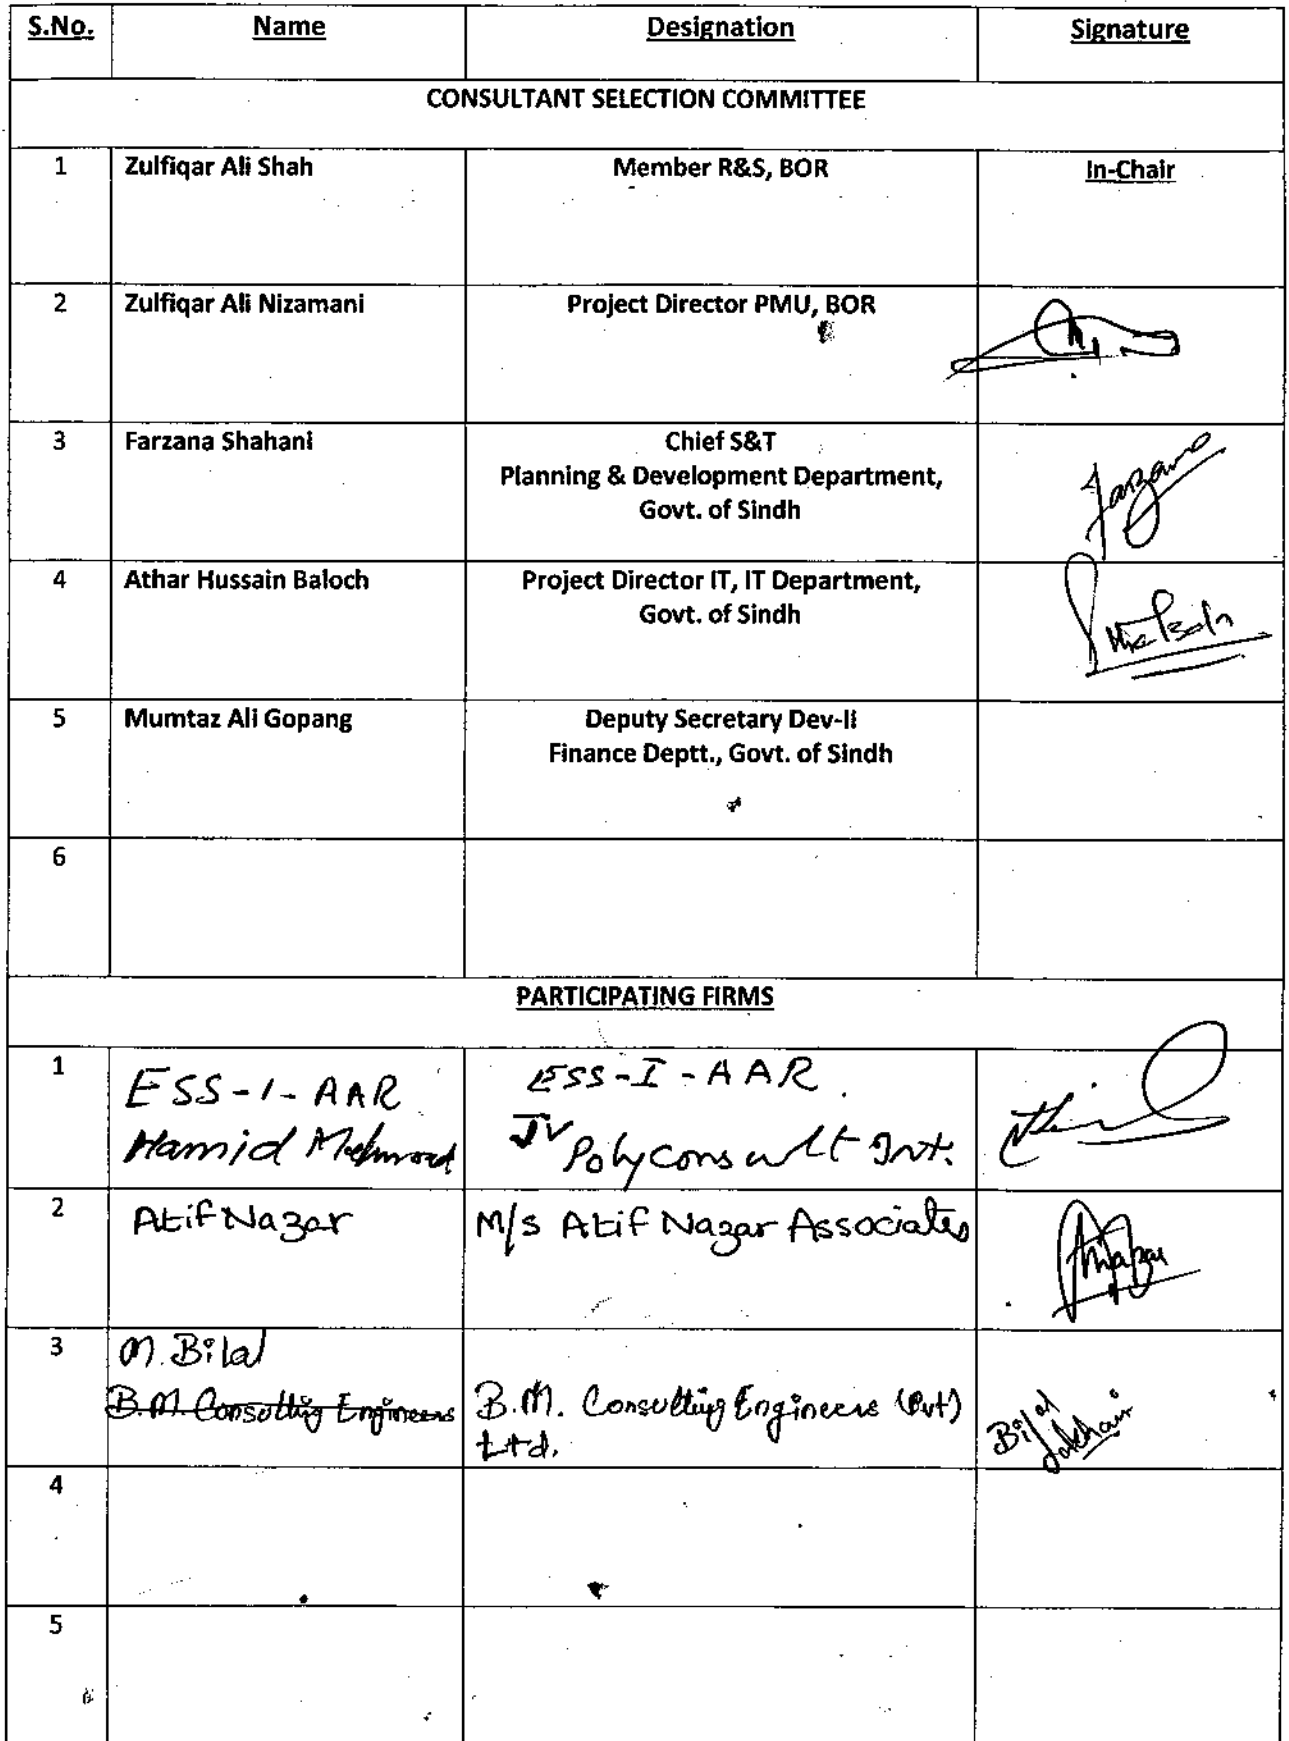 S.No. Name Designation Signature
CONSULTANT SELECTION COMMITTEE
1 Zulfiqar Ali Shah Member R&S, BOR In-Chair
2 Zulfiqar Ali Nizamani Project Director PMU, BOR
3 Farzana Shahani Chief S&T
Planning & Development Department,
Govt. of Sindh
Farzana
4 Athar Hussain Baloch Project Director IT, IT Department,
Govt. of Sindh
5 Mumtaz Ali Gopang Deputy Secretary Dev-II
Finance Deptt., Govt. of Sindh
6
PARTICIPATING FIRMS
1 ESS-I-AAR ESS-I-AAR
Hamid Mehmood JV Polyconsult Int.
2 Atif Nazar M/s Atif Nazar Associates
3 M. Bilal
B.M. Consulting Engineers B.M. Consulting Engineers (Pvt)
Ltd.
Bilal
4
5